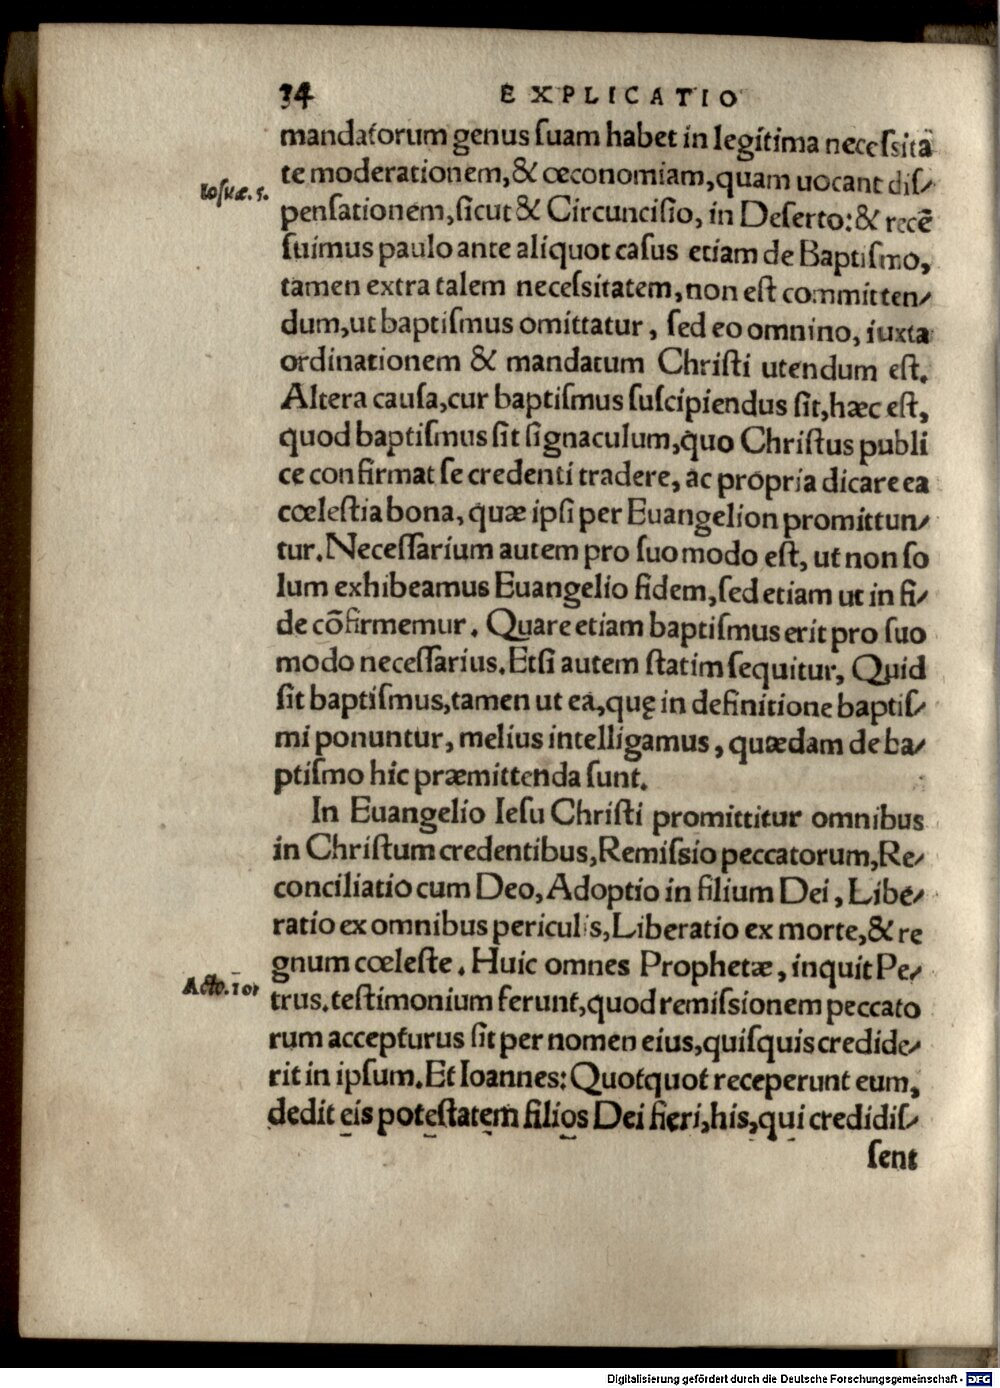 34 EXPLICATIO
mandatorum genus ſuam habet in legitima neceſsitā
te moderationem, & œconomiam, quam uocant diſ⸗
Ioſuæ. 5.
penſationem, ſicut & Circunciſio, in Deſerto: & recē
ſuimus paulo ante aliquot caſus etiam de Baptiſmo,
tamen extra talem neceſsitatem, non eſt committen⸗
dum, ut baptiſmus omittatur, ſed eo omnino, iuxta
ordinationem & mandatum Chriſti utendum eſt.
Altera cauſa, cur baptiſmus ſuſcipiendus ſit, hæc eſt,
quod baptiſmus ſit ſignaculum, quo Chriſtus publi
ce confirmat ſe credenti tradere, ac propria dicare ea
cœleſtia bona, quæ ipſi per Euangelion promittun⸗
tur. Neceſſarium autem pro ſuo modo eſt, ut non ſo
lum exhibeamus Euangelio fidem, ſed etiam ut in fi⸗
de cōfirmemur. Quare etiam baptiſmus erit pro ſuo
modo neceſſarius. Etſi autem ſtatim ſequitur, Quid
ſit baptiſmus, tamen ut ea, quę in definitione baptiſ⸗
mi ponuntur, melius intelligamus, quædam de ba⸗
ptiſmo hic præmittenda ſunt.
In Euangelio Ieſu Chriſti promittitur omnibus
in Chriſtum credentibus, Remiſsio peccatorum, Re⸗
conciliatio cum Deo, Adoptio in filium Dei, Libe⸗
ratio ex omnibus periculis, Liberatio ex morte, & re
gnum cœleſte. Huic omnes Prophetæ, inquit Pe⸗
Acto. 10.
trus. teſtimonium ferunt, quod remiſsionem peccato
rum accepturus ſit per nomen eius, quiſquis credide⸗
rit in ipſum. Et Ioannes: Quotquot receperunt eum,
dedit eis poteſtatem filios Dei fieri, his, qui credidiſ⸗
ſent
Digitalisierung gefördert durch die Deutsche Forschungsgemeinschaft - DFG